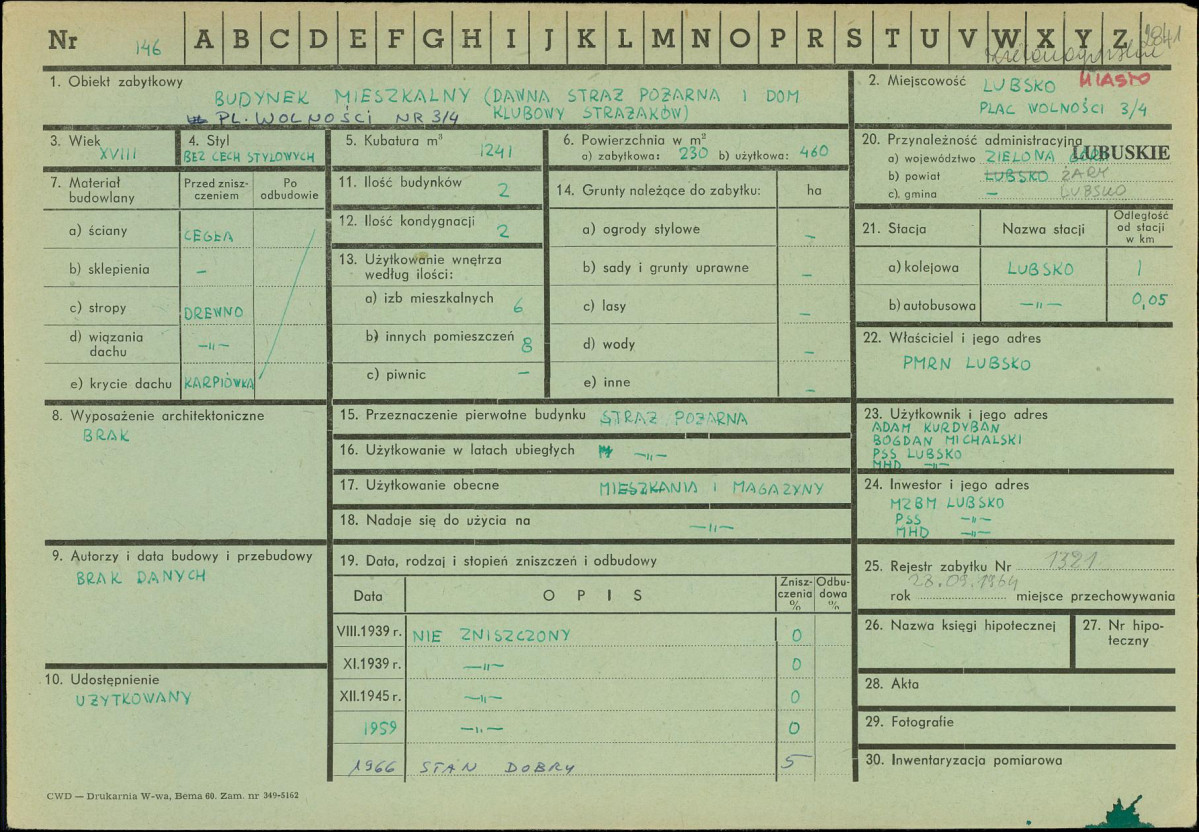 Nr 146 A B C D E F G H I J K L M N O P R S T U V W X Y Z 2841
1. Obiekt zabytkowy
BUDYNEK MIESZKALNY (DAWNA STRAŻ POŻARNA I DOM
PL. WOLNOŚCI NR 3/4 KLUBOWY STRAŻAKÓW)
2. Miejscowość LUBSKO MIASTO
PLAC WOLNOŚCI 3/4
3. Wiek
XVIII
4. Styl
BEZ CECH STYLOWYCH
5. Kubatura m³
1241
6. Powierzchnia w m²
a) zabytkowa: 230 b) użytkowa: 460
20. Przynależność administracyjna
a) województwo ZIELONA GÓRA LUBUSKIE
b) powiat LUBSKO ŻARY
c) gmina – LUBSKO
7. Materiał budowlany
Przed znisz-
czeniem
Po
odbudowie
a) ściany CEGŁA
b) sklepienia –
c) stropy DREWNO
d) wiązania
dachu –"–
e) krycie dachu KARPIÓWKA
11. Ilość budynków 2
12. Ilość kondygnacji 2
13. Użytkowanie wnętrza
według ilości:
a) izb mieszkalnych 6
b) innych pomieszczeń 8
c) piwnic –
14. Grunty należące do zabytku: ha
a) ogrody stylowe –
b) sady i grunty uprawne –
c) lasy –
d) wody –
e) inne –
21. Stacja Nazwa stacji Odległość
od stacji
w km
a) kolejowa LUBSKO 1
b) autobusowa –"– 0,05
22. Właściciel i jego adres
PMRN LUBSKO
8. Wyposażenie architektoniczne
BRAK
15. Przeznaczenie pierwotne budynku STRAŻ POŻARNA
16. Użytkowanie w latach ubiegłych –"–
17. Użytkowanie obecne MIESZKANIA I MAGAZYNY
18. Nadaje się do użycia na –"–
23. Użytkownik i jego adres
ADAM KURDYBAN
BOGDAN MICHALSKI
PSS LUBSKO
MHD –"–
24. Inwestor i jego adres
MZBM LUBSKO
PSS –"–
MHD –"–
9. Autorzy i data budowy i przebudowy
BRAK DANYCH
19. Data, rodzaj i stopień zniszczeń i odbudowy
Data OPIS Znisz-
czenia
% Odbu-
dowa
%
VIII.1939 r. NIE ZNISZCZONY 0
XI.1939 r. –"– 0
XII.1945 r. –"– 0
1959 –"– 0
1966 STAN DOBRY 5
25. Rejestr zabytku Nr 1321
28.09.1964
rok miejsce przechowywania
26. Nazwa księgi hipotecznej
27. Nr hipo-
teczny
10. Udostępnienie
UŻYTKOWANY
28. Akta
29. Fotografie
30. Inwentaryzacja pomiarowa
CWD — Drukarnia W-wa, Bema 60. Zam. nr 349-5162